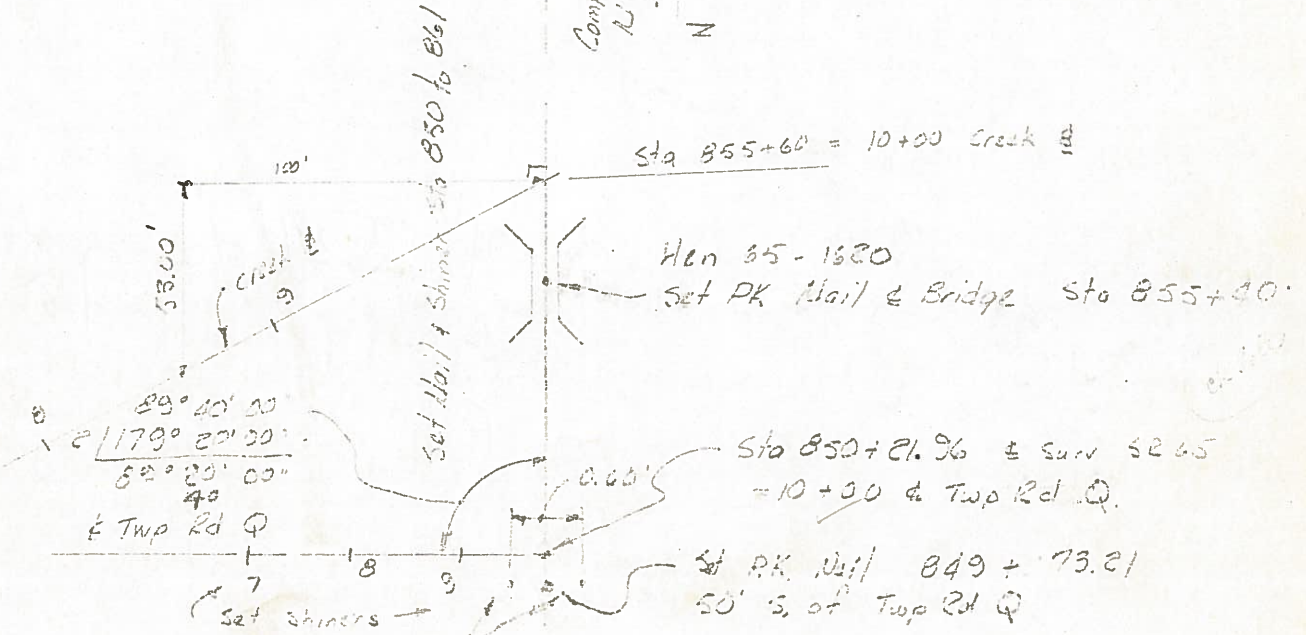 N
Set Nail & Shiner Sta 850 to 861
Sta 855+60 = 10+00 Creek ℄
100'
53.00'
Creek ℄
9
8
Hen 65-1620
Set PK Nail ℄ Bridge Sta 855+20
89° 40' 00"
2/179° 20' 00"
89° 20' 00"
40
℄ Twp Rd Q
0.60'
Sta 850+21.96 ℄ Surv SR 65
=10+00 ℄ Twp Rd Q.
7
8
9
Set Shiners
Set P.K. Nail 849+73.21
50' S. of Twp Rd Q